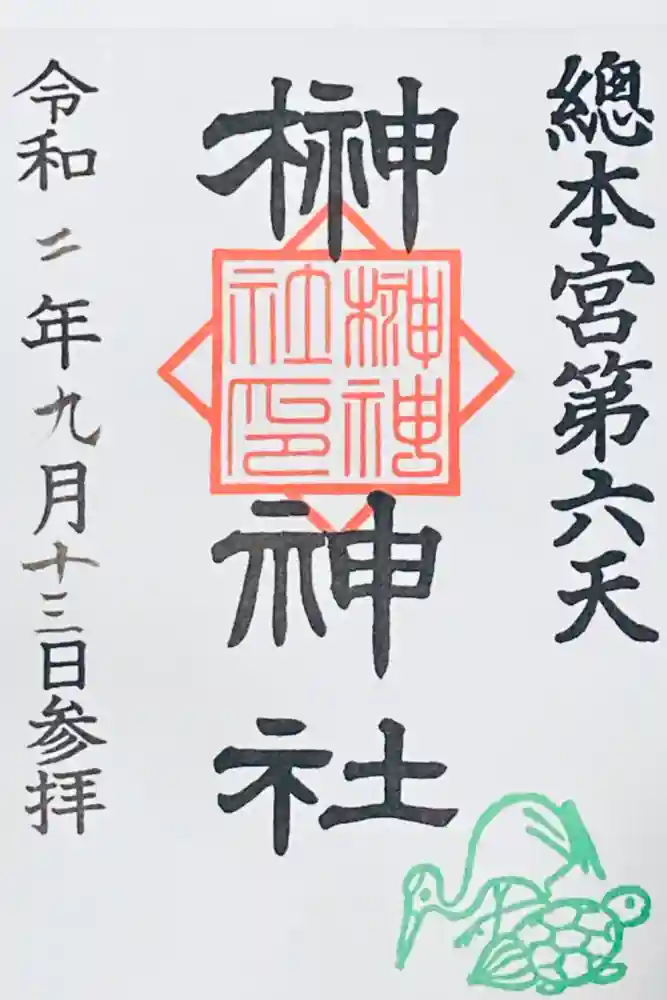 總本宮第六天
榊神社
榊神
社印
令和二年九月十三日参拝